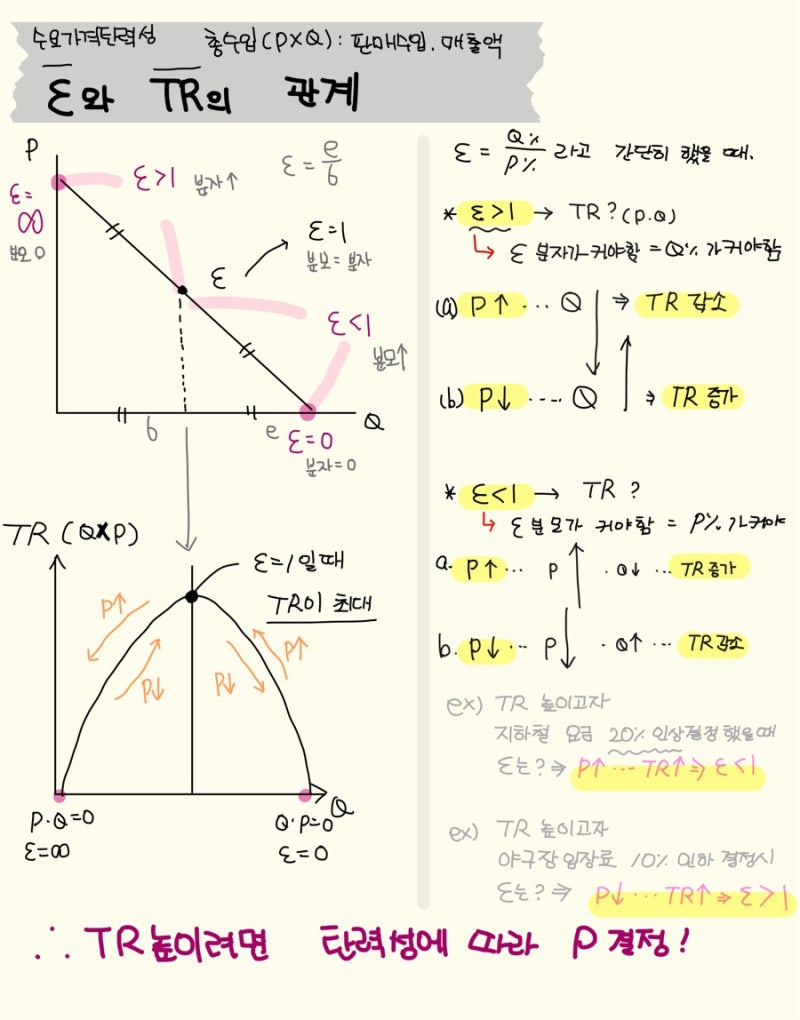 수요가격탄력성 총수입(P×Q): 판매수입, 매출액
ε와 TR의 관계
P
ε=∞
분모 0
ε>1
분자↑
ε = e/b
ε
ε=1
분모=분자
ε<1
분모↑
b
e
Q
ε=0
분자=0
TR (Q×P)
ε=1일때
TR이 최대
P↑
P↓
P↓
P↑
Q
P·Q=0
ε=∞
Q·P=0
ε=0
ε = Q%/P% 라고 간단히 했을 때.
* ε>1 → TR? (P.Q)
↳ ε 분자가 커야함 = Q% 가 커야함
(a) P↑ ··· Q ↓ ⇒ TR 감소
(b) P↓ ···· Q ↑ ⇒ TR 증가
* ε<1 → TR ?
↳ ε 분모가 커야함 = P% 가 커야
a. P↑ ··· P ↑ · Q↓ ··· TR 증가
b. P↓ ··· P ↓ · Q↑ ··· TR 감소
ex) TR 높이고자
지하철 요금 20% 인상결정 했을때
ε는? ⇒ P↑ ··· TR↑ ⇒ ε<1
ex) TR 높이고자
야구장 입장료 10% 인하 결정시
ε는? ⇒ P↓ ··· TR↑ ⇒ ε>1
∴ TR 높이려면 탄력성에 따라 P 결정!